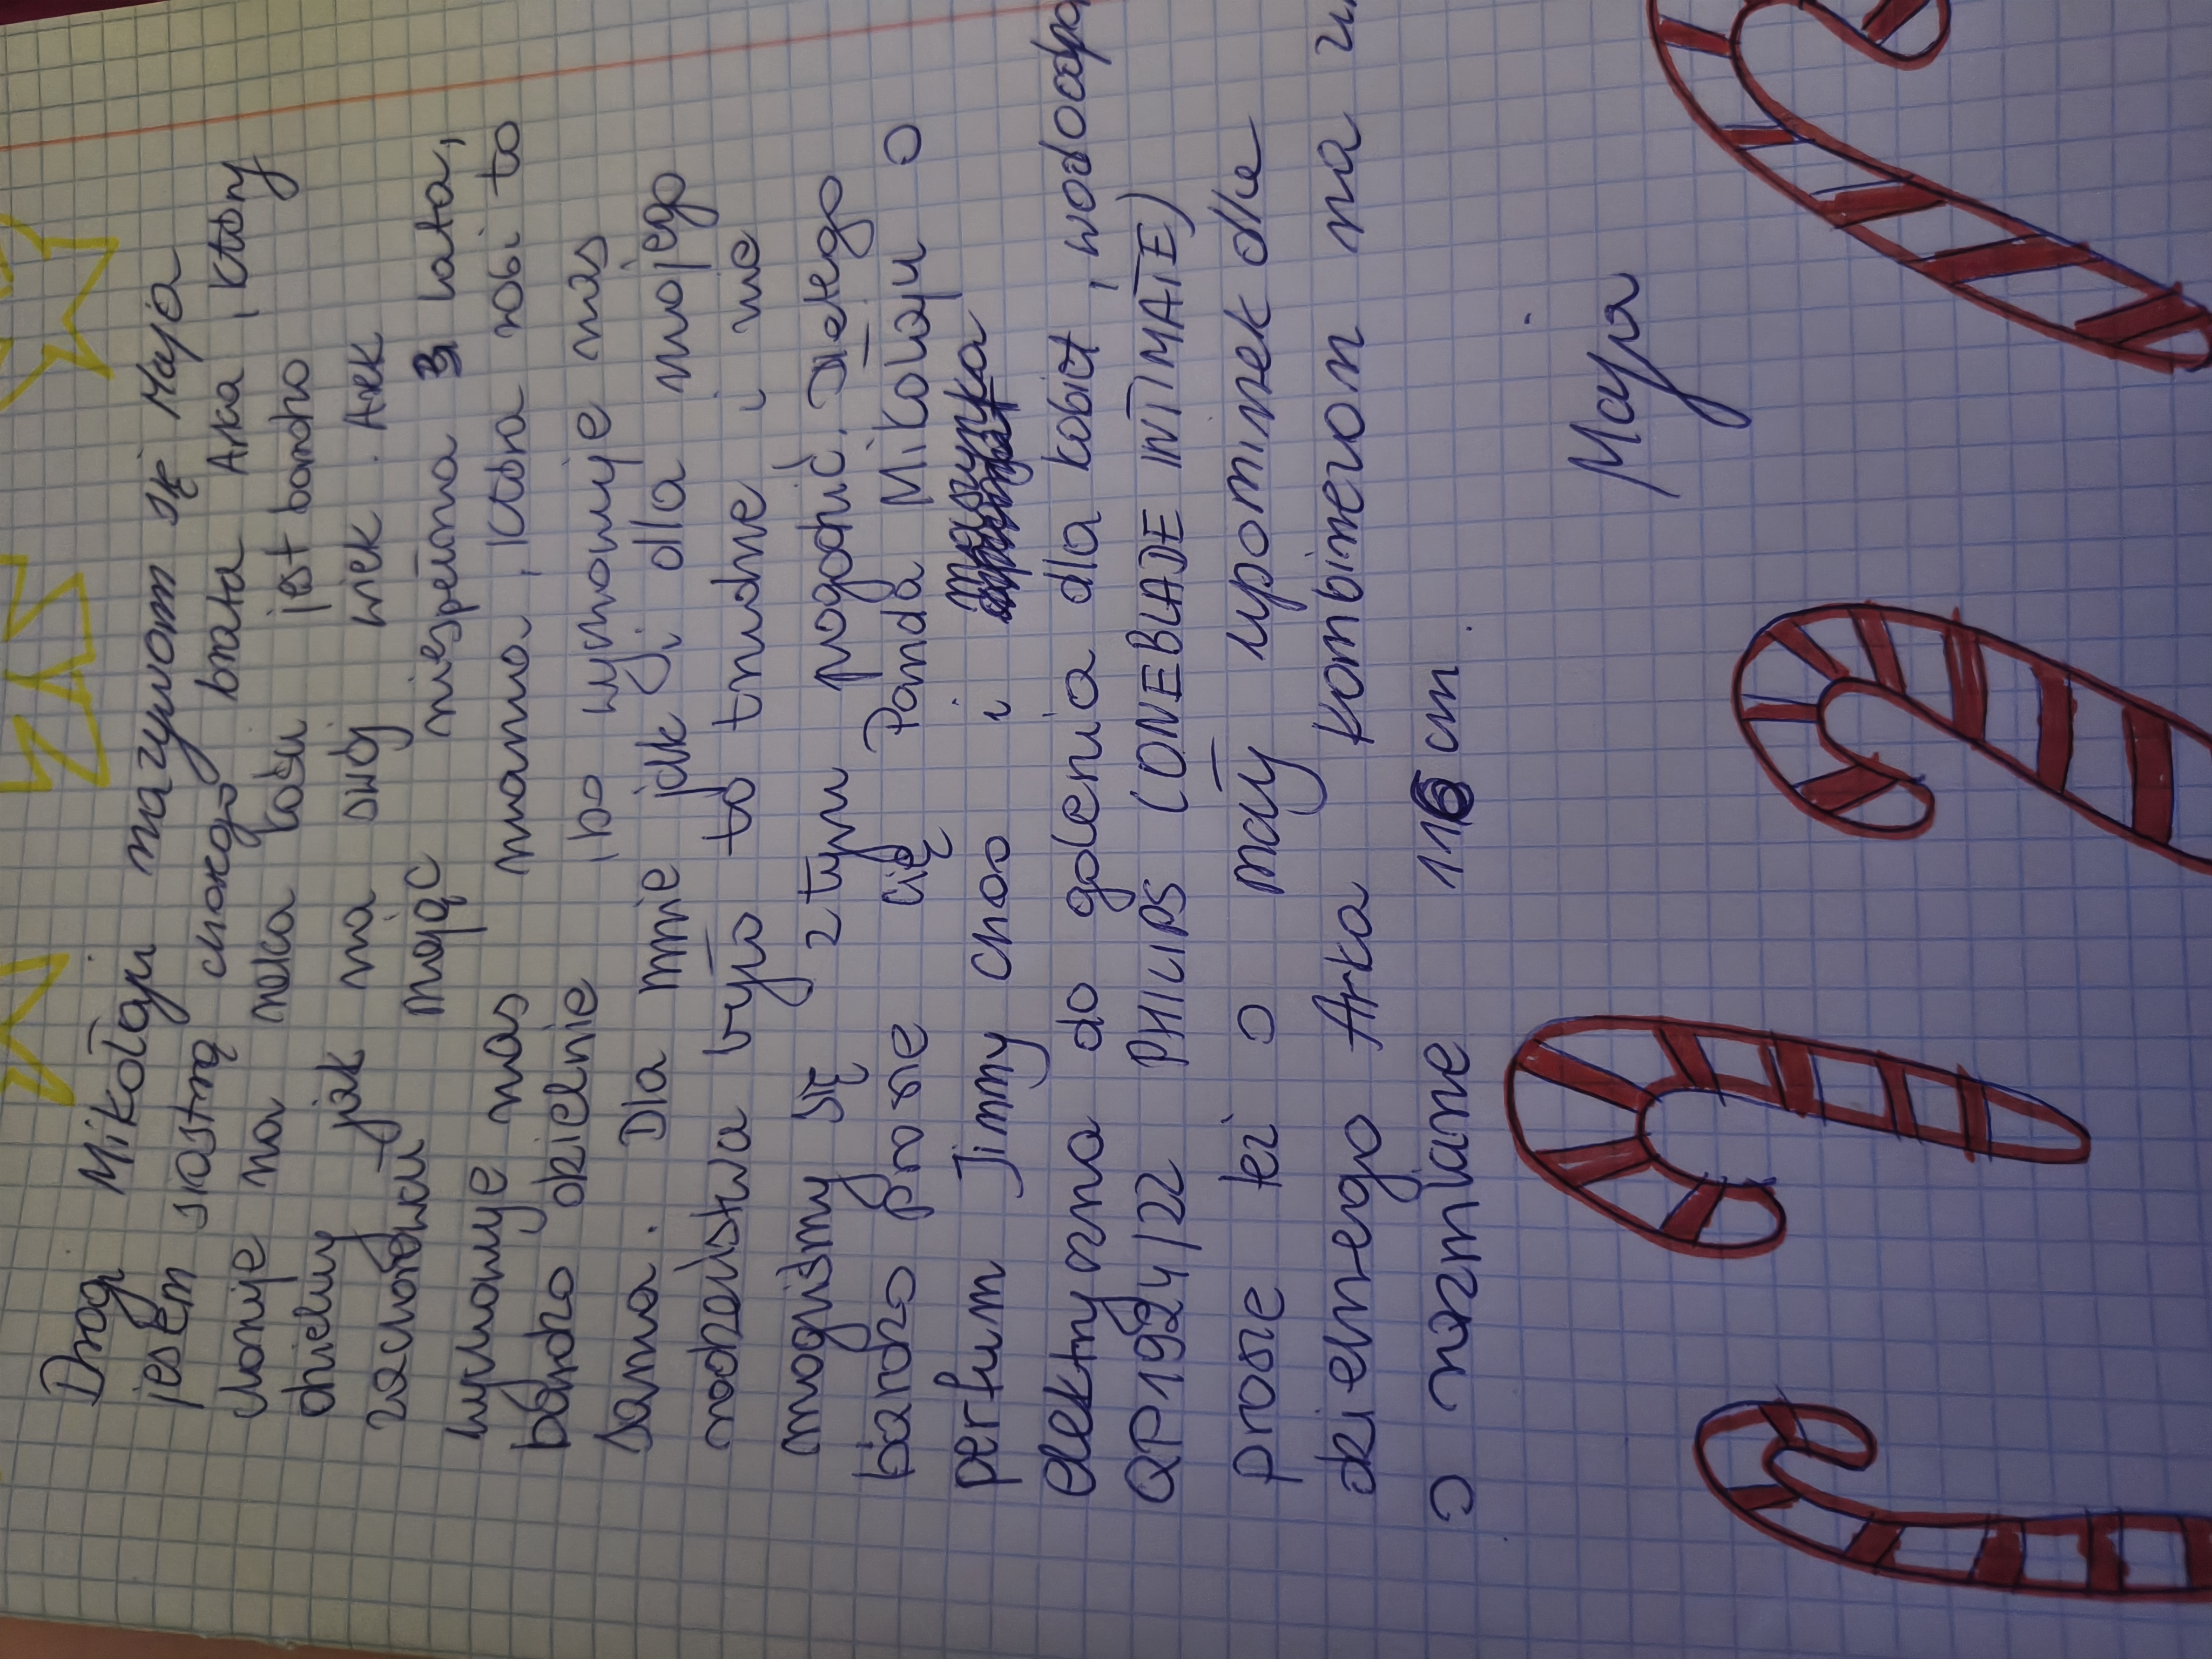 Drogi Mikołaju nazywam się Maja
jestem siostrą chorego brata Arka, który
choruje na raka kości jest bardzo
dzielny jak na swój wiek. Arek
zachorował mając niespełna 3 lata,
wychowuje nas mama, która robi to
bardzo dzielnie, bo wychowuje nas
sama. Dla mnie jak i dla mojego
rodzeństwa było to trudne i nie
mogliśmy się z tym pogodzić. Dlatego
bardzo prosze cię Panda Mikołaju o
perfum Jimmy choo i maszynka
elektryczna do golenia dla kobiet, wodoodpo
QP1924/22 PHILIPS (ONEBLADE INTIMATE)
prosze też o mały upominek dla
dzielnego Arka kombinezon na zi
o rozmiarze 116 cm.
Maja